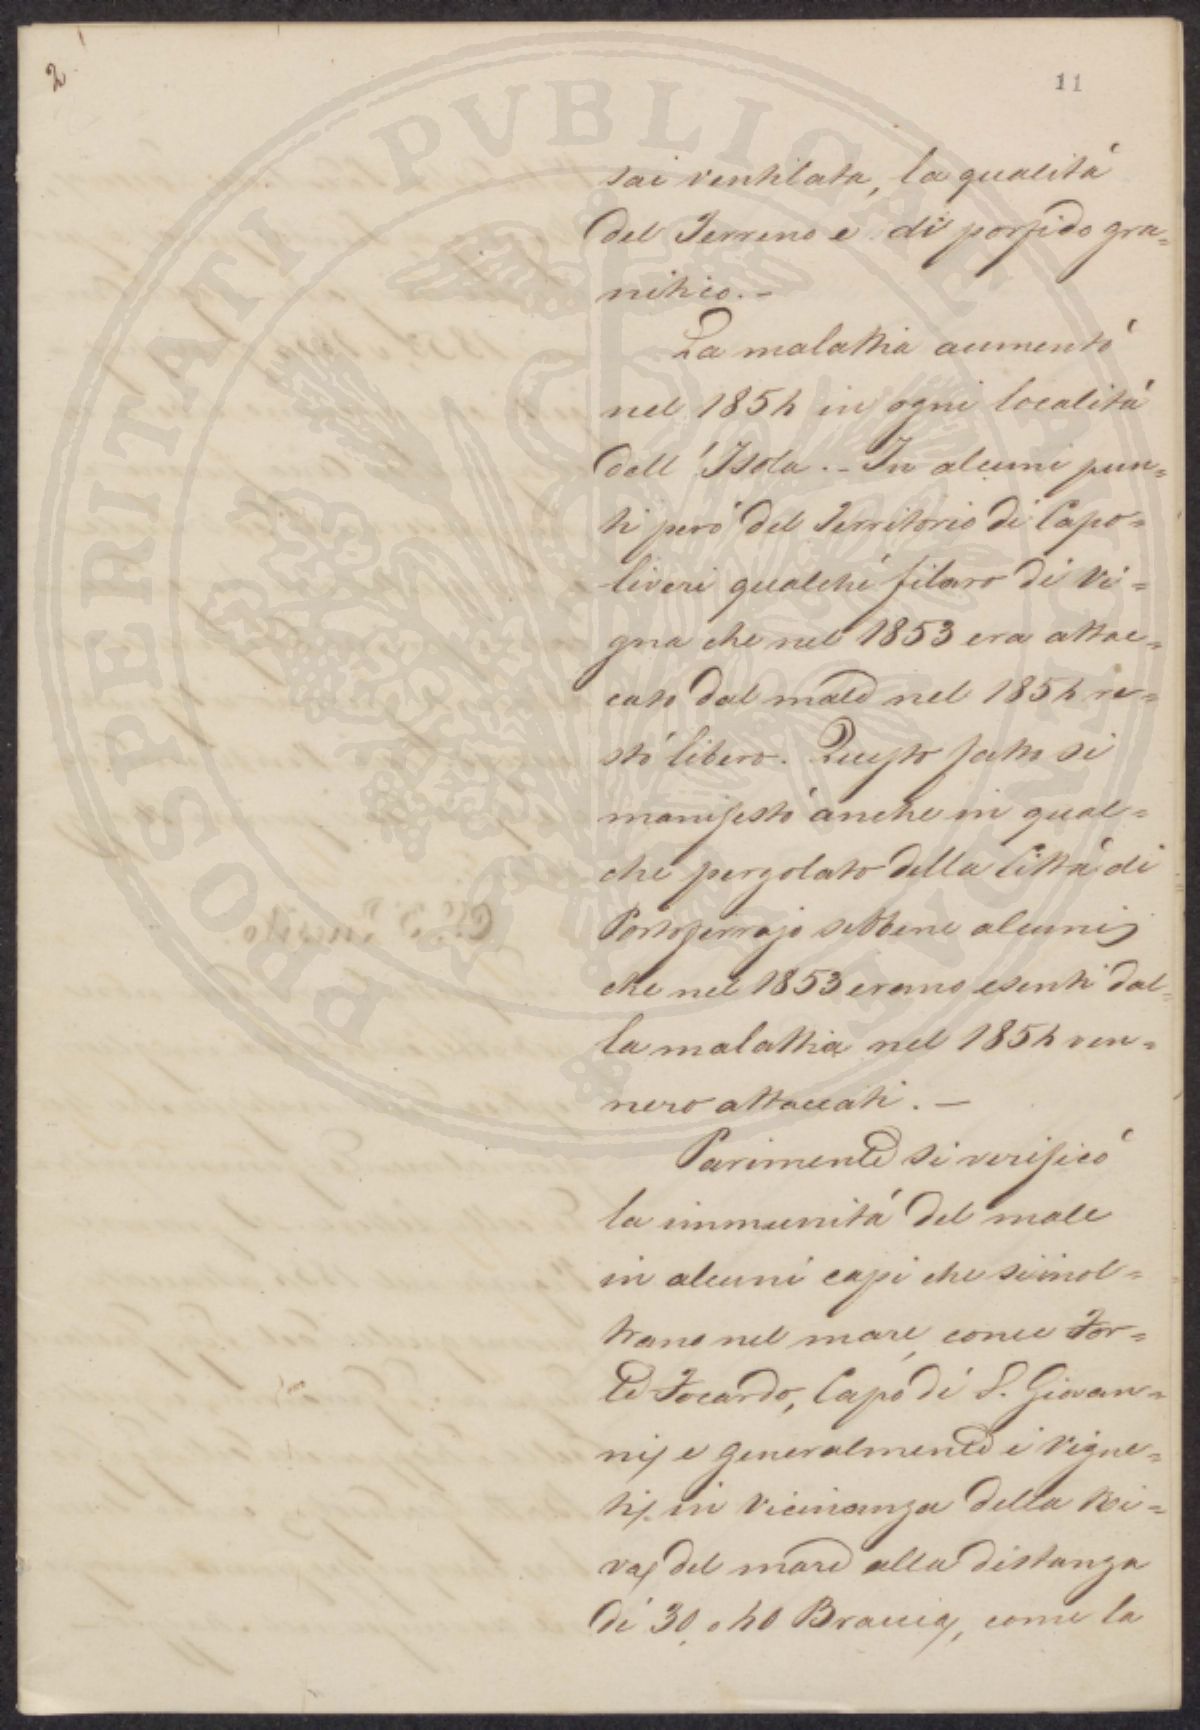 2
11
sai ventilata, la qualitá
del Terreno e di porfido gra=
nitico. —
La malattia aumentó
nel 1854 in ogni localitá
dell' Isola. — In alcuni pun=
ti peró del Territorio di Capo=
liveri qualche filaro di Vi=
gna che nel 1853 era attac=
cato dal male nel 1854 re=
stó libero. Questo fatto si
manifestó anche in qual=
che pergolato della Cittá di
Portoferrajo sebbene alcuni
che nel 1853 erano esenti dal=
la malattia nel 1854 ven=
nero attaccati. —
Parimente si verificó
la immunitá del male
in alcuni capi che si inol=
trano nel mare, come For=
te Focardo, Capo di S. Giovan=
ni, e generalmente i Vigne=
ti, in Vicinanza della Ri=
va, del mare alla distanza
di 30, o 40 Braccia, come la
PROSPERITATI PVBLICAE AVGENDAE